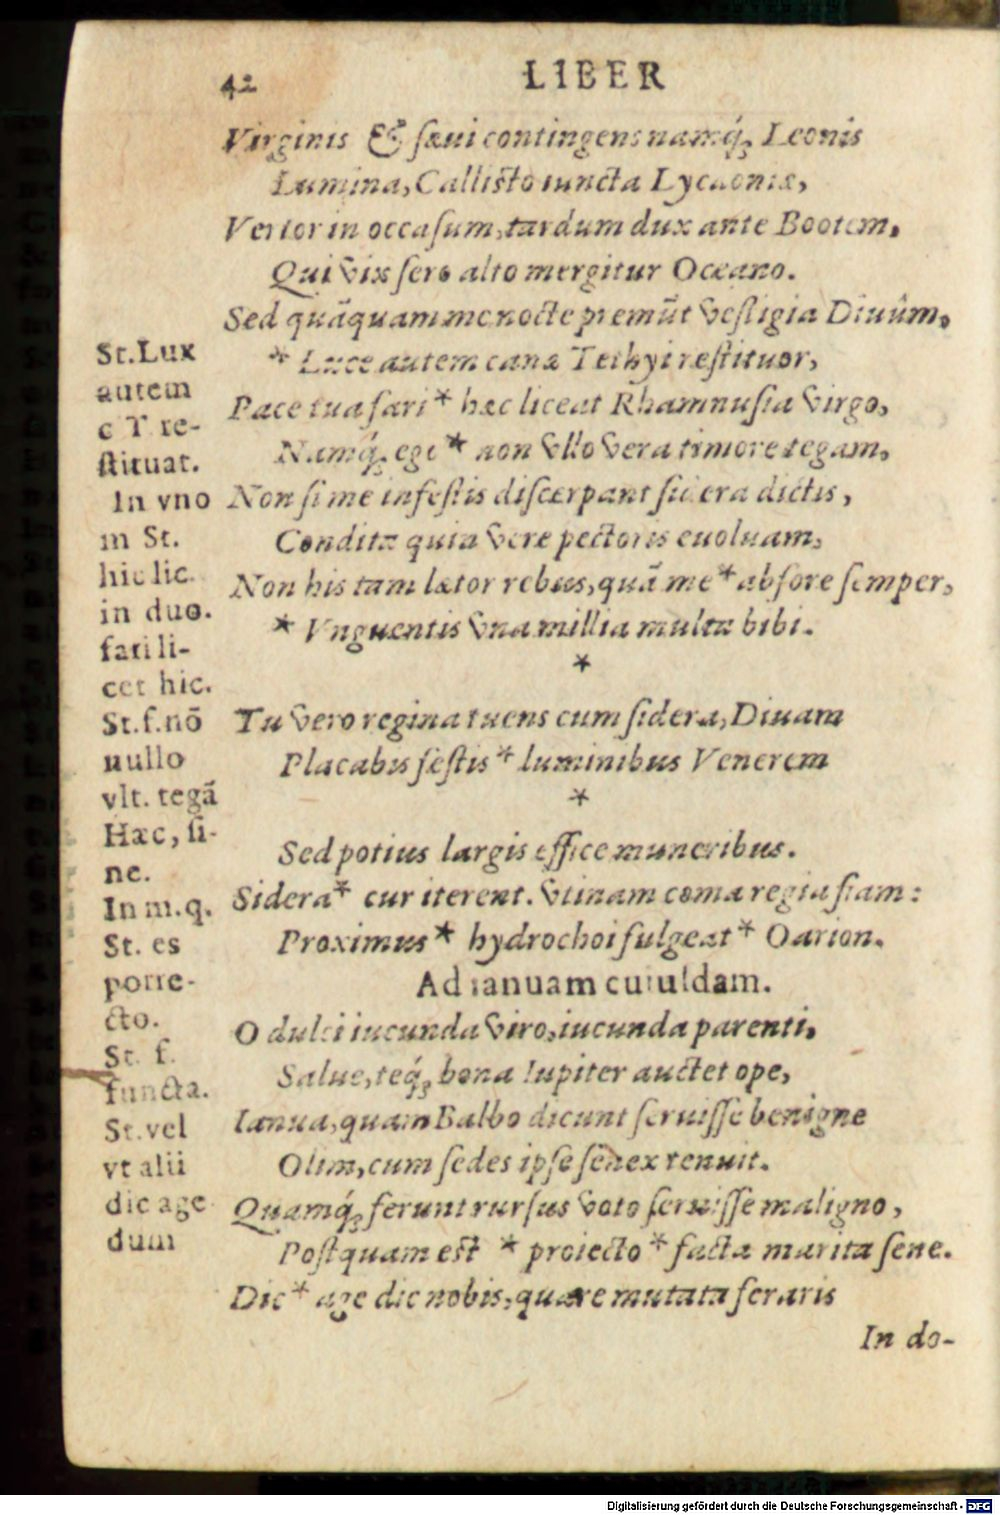 42
LIBER
Virginis & sæui contingens namq́; Leonis
Lumina, Callisto iuncta Lycaoniæ,
Vertor in occasum, tardum dux ante Bootem,
Qui vix sero alto mergitur Oceano.
Sed quāquam me nocte premūt vestigia Diuûm,
* Luce autem canæ Tethyi restituor,
Pace tua fari * hæc liceat Rhamnusia virgo,
Namq́; ego * non vllo vera timore tegam,
Non si me infestis discerpant sidera dictis,
Condita quin vere pectoris euoluam,
Non his tam lætor rebus, quā me * abfore semper,
* Vnguentis vna millia multa bibi.
*
Tu vero regina tuens cum sidera, Diuam
Placabis festis * luminibus Venerem
*
Sed potius largis effice muneribus.
Sidera * cur iterent. vtinam coma regia fiam:
Proximus * hydrochoi fulgeat * Oarion.
Ad ianuam cuiusdam.
O dulci iucunda viro, iucunda parenti,
Salue, teq́; bona Iupiter auctet ope,
Ianua, quam Balbo dicunt seruisse benigne
Olim, cum sedes ipse senex tenuit.
Quamq́; ferunt rursus voto seruisse maligno,
Postquam est * proiecto * facta marita sene.
Dic * age dic nobis, quare mutata feraris
In do-
St. Lux
autem
c T re-
stituat.
In vno
m St.
hic lic.
in duo.
fati li-
cet hic.
St. f. nō
nullo
vlt. tegā
Hæc, si-
ne.
In m. q.
St. es
porre-
cto.
St. f.
functa.
St. vel
vt alii
dic age
dum
Digitalisierung gefördert durch die Deutsche Forschungsgemeinschaft - DFG